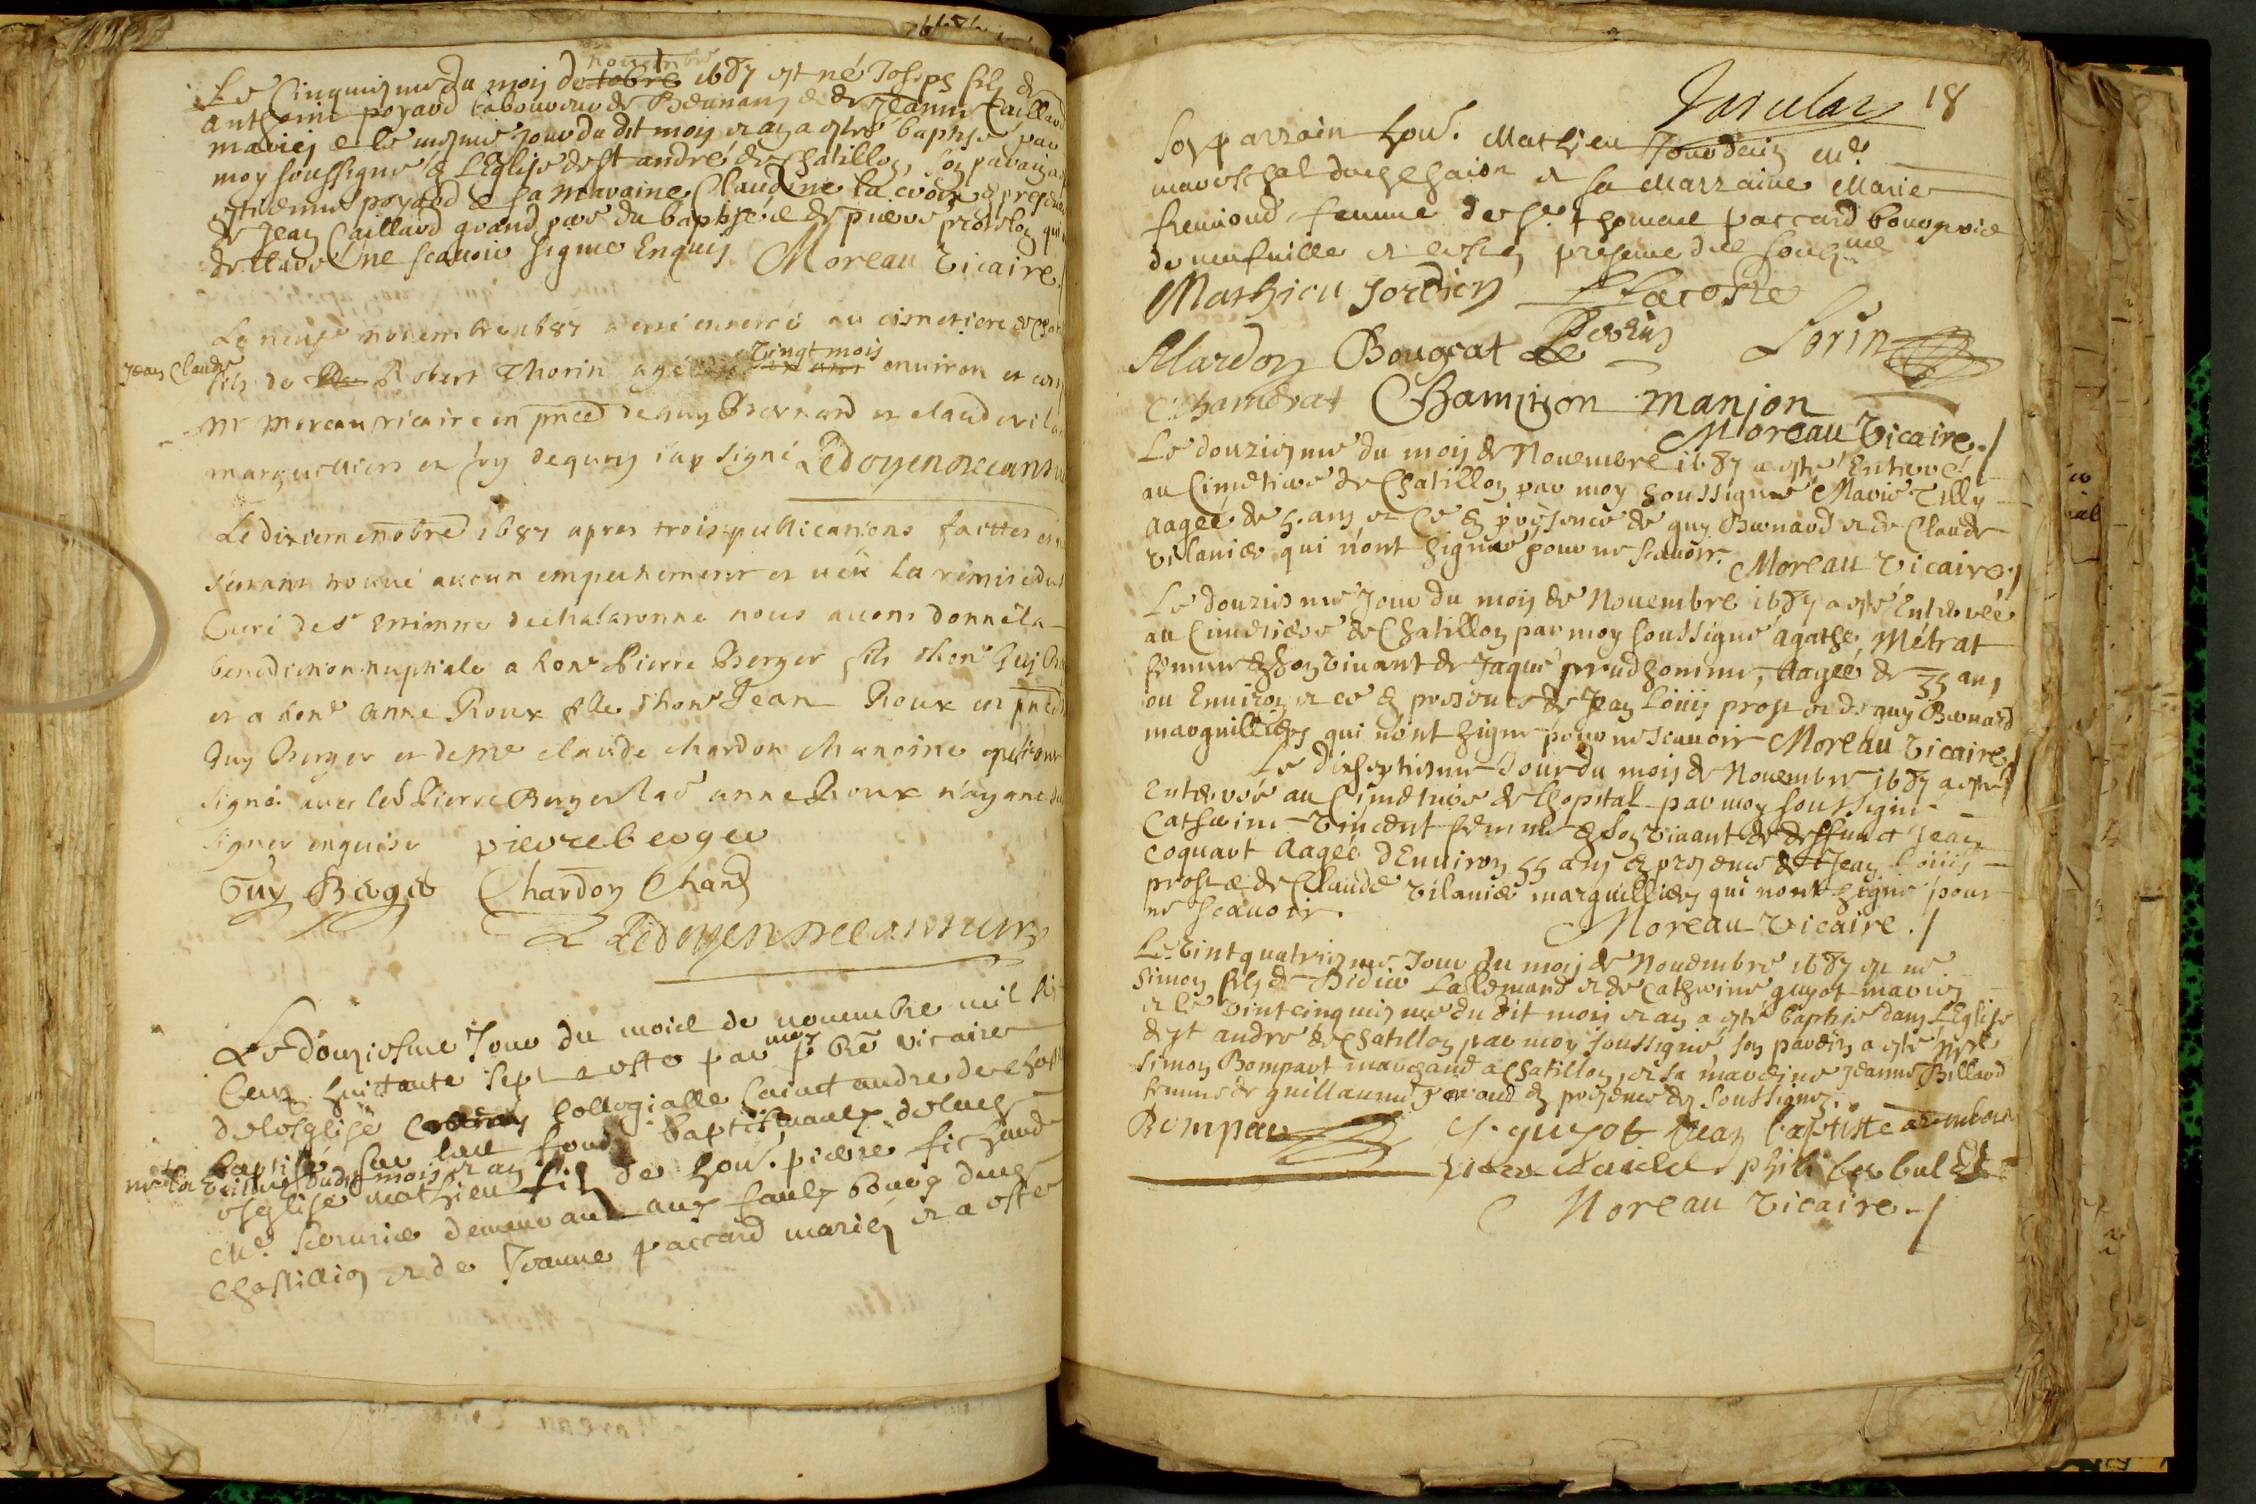 novembre
Le Cinquiesme du moij de tobre 1687 est né Joseph filz de
anthoine poyard laboureur de Beaunans & de Jeanne Caillard
mariez & le mesme Jour du dit mois et an a esté baptisé par
moy soussigné En L'Eglise de St andré de Chatillon, son parain a
estienne poyard & sa Maraine Claudine la croix presence
de Jean Caillard grand pere du baptisé & de pierre qui
ne scavoir signer Enquis Moreau Vicaire
Le neuf novembre 1687 a esté enterré au cismetiere de Chat
Jean Claude
fils de Robert Thorin agé vingt mois environ et
Mr Moreau vicaire en pnce de guy Bernard et claude vila
marguilliers et foy dequoy iay signé Ledoyen
Le dixieme nobre 1687 apres trois publications faittes et
s'estant trouvé aucun empechement et veü la remise du
Curé de St Estienne de chalaronne nous avons donné la
benediction nuptiale a hone Pierre Berger fils d'hone Guy
et a hone Anne Roux fille d'hone Jean Roux en pnce
Guy Berger et de Mre claude chardon chanoine
signé avec led Pierre Berger lad anne Roux n'ayant
signer enquise pierre berger
Guy Berger Chardon Chan
Ledoyen
Le douziesme Jour du moid de novembre mil six
Cent huittante sept a esté par moy pbre vicaire
de lesglise Collegialle Sainct andre de Chast
baptisé sur les fonds baptismaulx de lad
né la veille dudit mois et an
esglise mathieu filz de hon. pierre fichaud
Me serurier demeurant aux faulx bourg dud
Chastillion et de Jeanne paccard mariez et a esté
18
Son parrain hon. Mathieu Jourdain Me
mareschal et sa Marraine Marie
femme de Sr thomas paccard bourgeois
de et en presence des soubz.nes
Mathieu Jordien Lacoste
Chardon Bougrat Lorin
Chamerat Champion manjon
Moreau Vicaire./
Le douziesme du mois de Novembre 1687 a esté Enterré
au Cimetiere de Chatillon par moy soussigné Marie Tilly
aagée de 5 ans et ce En presence de guy Bernard et de Claude
vilanier qui n'ont signé pour ne scavoir. Moreau Vicaire./
Le douziesme Jour du mois de Novembre 1687 a esté Enterrée
au Cimetiere de Chatillon par moy soussigné agathe Métrat
femme En son vivant de Jaque prudhomme, aagée de 35 ans
ou Environ et ce En presence de Jean Louis prost et de guy Bernard
marguilliers qui n'ont signé pour ne scavoir Moreau Vicaire
Le dixseptiesme Jour du mois de Novembre 1687 a esté
Enterrée au Cimetiere de Lhopital par moy soussigné
Catherine Vincent femme En son vivant de deffunct Jean
Coquart aagée d'Environ 55 ans En presence de Jean Louis
prost & de Claude vilanier marguilliers qui n'ont signé pour
ne scavoir.
Moreau Vicaire./
Le Vint quatriesme Jour du mois de Novembre 1687 est né
Simon filz de Didier Lallemand et de Catherine guyot mariez
et le Vint cinquiesme du dit mois et an a esté baptisé dans L'Eglise
de St andré de Chatillon par moy soussigné, son parein a esté
Simon Bompart marchand a Chatillon, et sa mareine Jeanne Billard
femme de guillaume En presence des Soussignez.
Bompar C. guyot Jean baptiste
philiber
Moreau Vicaire./